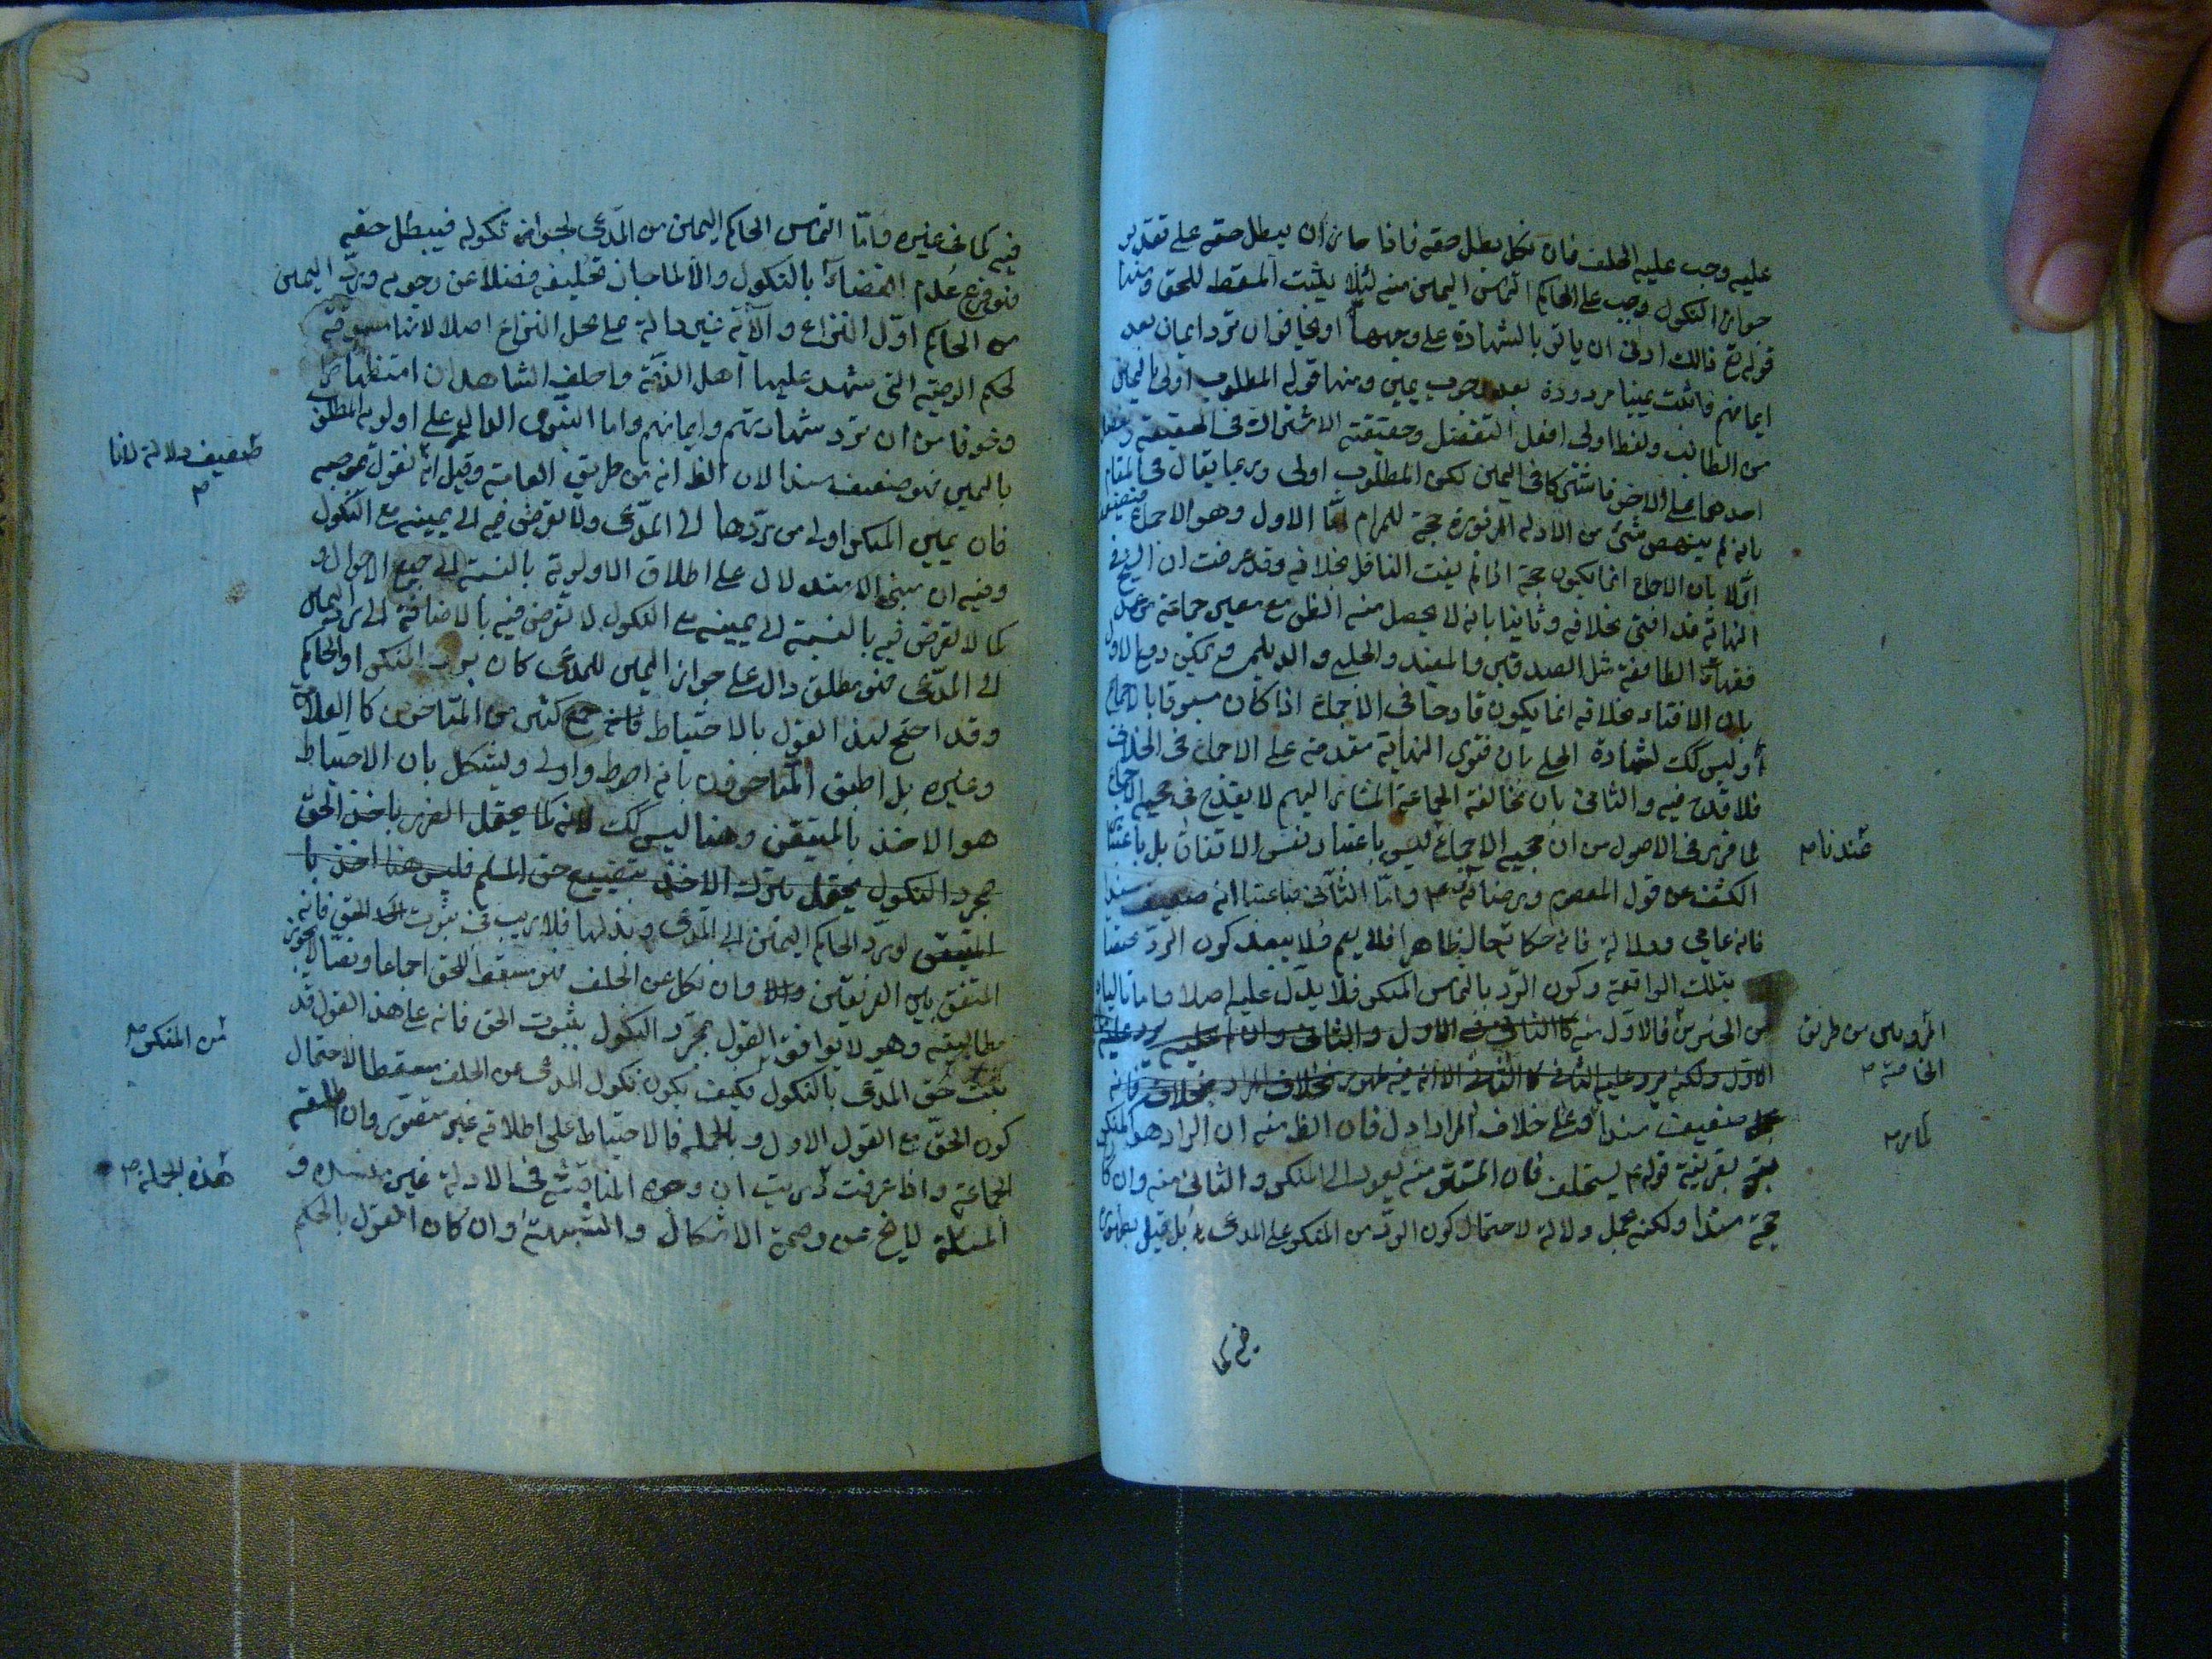 عليه وجب عليه الحلف فان نكل بطل حقه فاذا جاز ان يبطل حقه على تقدير
جواز النكول وجب على الحاكم التماس اليمين منه لئلا يثبت المسقط للحق ومنها
قوله تع ذلك ادنى ان ياتوا بالشهادة على وجهها او يخافوا ان ترد ايمان بعد
ايمانهم فاثبت يمينا مردودة بعد وجوب يمين ومنها قوله المطلوب اولى باليمين
من الطالب ولفظ اولى افعل التفضيل وحقيقته الاشتراك في الحقيقة وتفضيل
احدهما على الاخر فاشتركا في اليمين لكن المطلوب اولى وربما يقال في المقام
بانه لم ينهض شئ من الادلة المزبورة حجة للمرام اما الاول وهو الاجماع
اولا بان الاجماع انما يكون حجة اذا لم يفت الناقل بخلافه وقد عرفت ان الشيخ في
النهاية قد افتى بخلافه وثانيا بانه لا يحصل منه الظن مع مصير جماعة من
فقهاء الطائفة مثل الصدوقين والمفيد والحلبي والديلمي ويمكن دفع الاول
بان الافتاء بخلافه انما يكون قادحا في الاجماع اذا كان مسبوقا بالاجماع
وليس كك لشهادة الحلي بان فتوى النهاية مقدمة على الاجماع في الخلاف
فلا قدح فيه والثاني بان مخالفة الجماعة المشار اليهم لا يقدح في حجية الاجماع
لما قرر في الاصول من ان حجية الاجماع ليس باعتبار نفس الاتفاق بل باعتبار
عندنا م
الكشف عن قول المعصوم ورضائه واما الثاني فباعتبار انه ضعيف سندا
فانه عامي ودلالة فانه حكاية حال ظاهرا فلا يعم ولا يبعد كون الرد مختصا
بتلك الواقعة وكون الرد بالتماس المنكر فلا يدل عليه اصلا
من الخبرين فالاول منه كالثاني في الاول والثاني وان
المرويين من طريق
الخاصة م
الاول ولكنه يرد عليه الثاني كالثاني الا انه فيه ظهور بخلاف المراد بخلاف فانه
ضعيف سندا وعلى خلاف المراد ادل فان الظ منه ان الراد هو المنكر
بقرينة قوله يستحلف فان المستتر منه يعود الى المنكر والثاني منه وان كان
حجة سندا ولكنه مجمل دلالة لاحتمال كون الرد من المنكر على المدعى بل قيل بظهوره
فيه كما في غيره فاما التماس الحاكم اليمين من المدعى لجواز نكوله فيبطل حقه
فهو فرع عدم القضاء بالنكول والا لما جاز تحليفه فضلا عن وجوبه ورد اليمين
من الحاكم اول النزاع والآية غير دالة على محل النزاع اصلا لانها مسوقة
لحكم الوصية التي شهد عليها اهل الذمة وحلف الشاهدان استظهارا
وخوفا من ان ترد شهادتهم وايمانهم واما النبوى الدال على اولوية المطلوب
باليمين فهو ضعيف سندا لان الظ انه من طريق العامة وقيل انه نقول بموجبه
ضعيف دلالة لانا
م
فان يمين المنكر اولى من ردها الى المدعى ولا تعرض فيه الى يمينه مع النكول
وفيه ان مبنى الاستدلال على اطلاق الاولوية بالنسبة الى جميع الاحوال و
كما لا تعرض فيه بالنسبة الى يمينه مع النكول لا تعرض فيه بالاضافة الى رد اليمين
الى المدعى فهو مطلق دال على جواز اليمين للمدعى كان برد المنكر او الحاكم
وقد احتج لهذا القول بالاحتياط جمع كثير من المتاخرين كالعلامة
وغيره بل اطبق المتاخرون بانه احوط واولى ويشكل بان الاحتياط
هو الاخذ بالمتيقن وهنا ليس كك لانه كما يحتمل الضرر باخذ الحق
بمجرد النكول يحتمل بترك الاخذ بتضييع حق المسلم فليس هنا اخذ با
المتيقن لو رد الحاكم اليمين الى المدعى وبذلها فلا ريب في ثبوت الحق فانه
المتفق بين الفريقين وان نكل عن الحلف فهو مسقط للحق اجماعا ونصا
مطالبته وهو لا يوافق القول بمجرد النكول بثبوت الحق فانه على هذا القول قد
من المنكر م
ثبت حق المدعى بالنكول فكيف يكون نكول المدعى عن الحلف مسقطا لاحتمال
كون الحق مع القول الاول وبالجملة فالاحتياط على اطلاقه غير متصور وان
الجماعة واذا عرفت دريت ان وجوه المناقشة في الادلة غير
هذه الجملة م
المسئلة لا يخ عن وصمة الاشكال والشبهة وان كان القول بالحكم